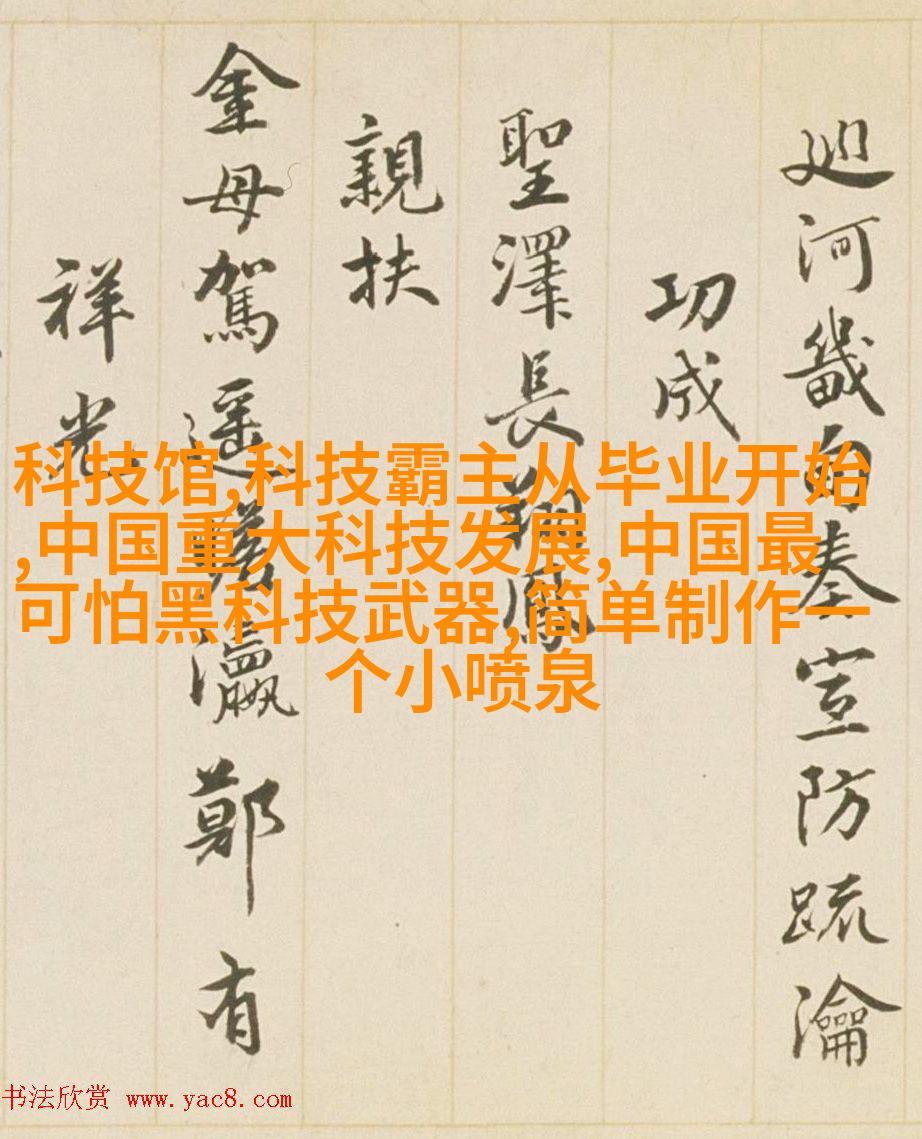 廵河畿自奏宣防疏瀹
功成
聖澤長翔
親扶
金母駕遥瞻瀛鄭有
祥光
科技馆,科技霸主从毕业开始
,中国重大科技发展,中国最
可怕黑科技武器,简单制作一
个小喷泉
书法欣赏 www.yac8.com